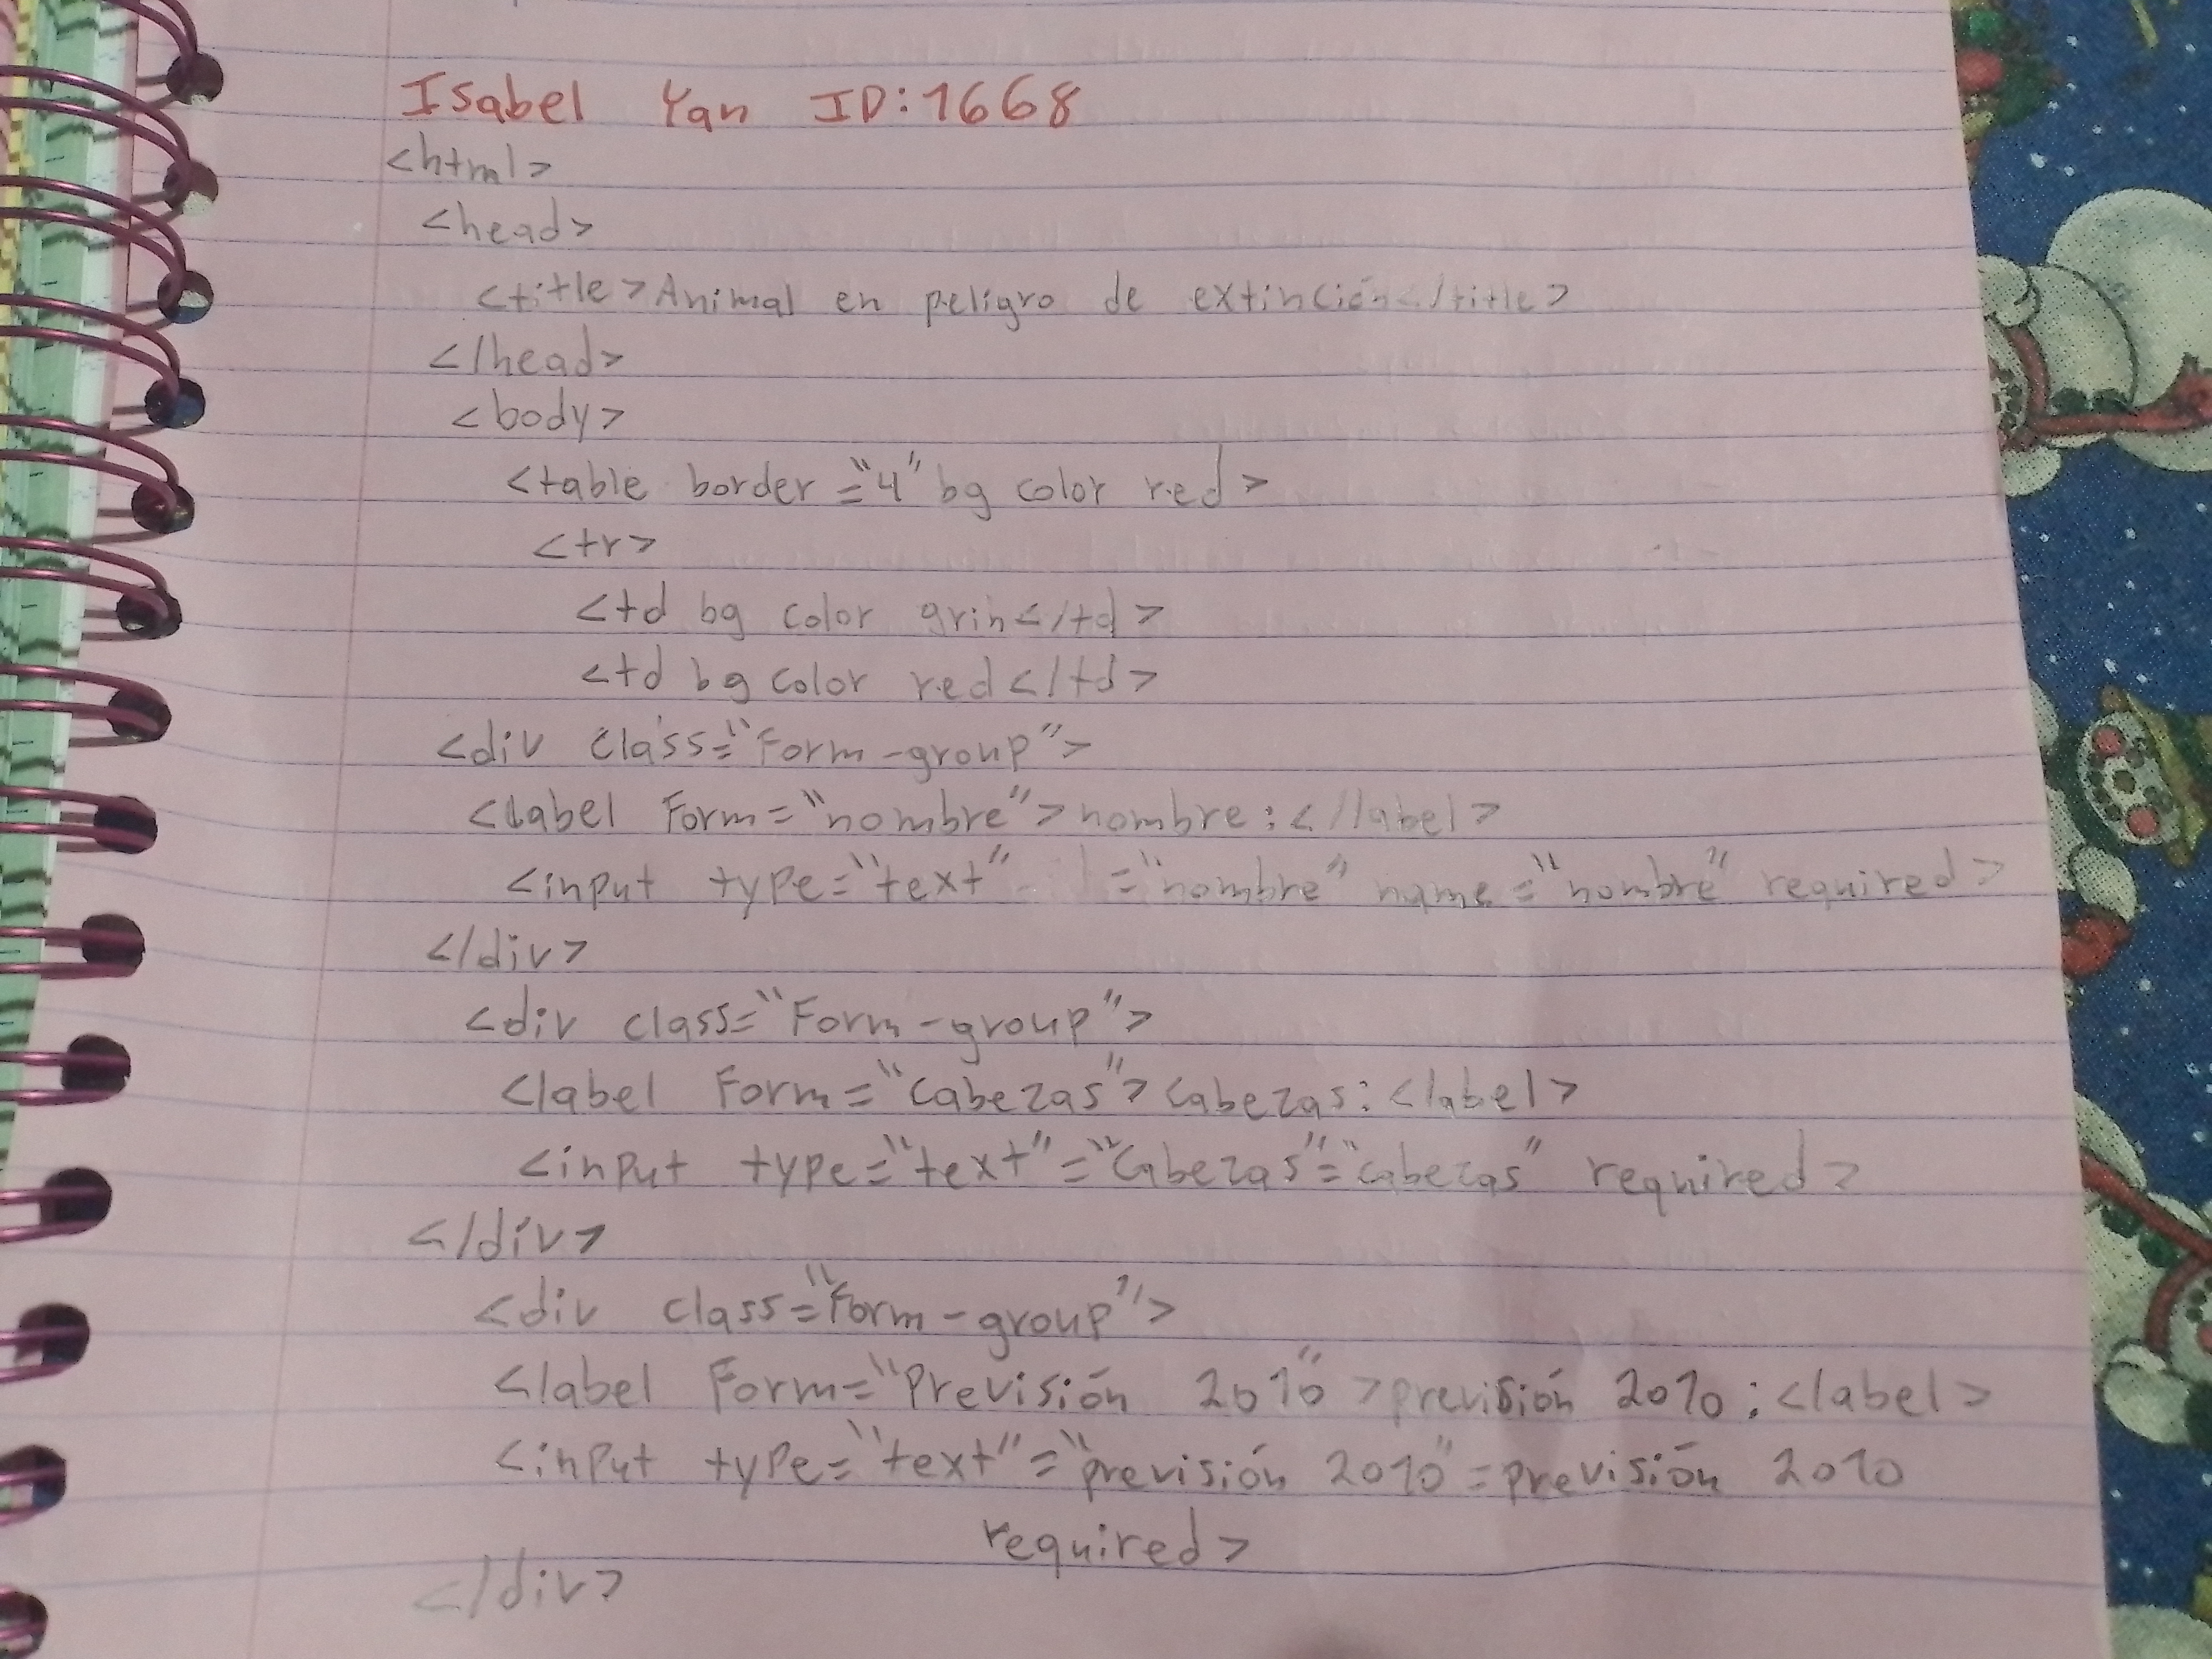 Isabel Yan ID:1668
<html>
<head>
<title>Animal en peligro de extinción</title>
</head>
<body>
<table border="4" bg color red>
<tr>
<td bg color grin</td>
<td bg color red</td>
<div class="Form-group">
<label Form="nombre">nombre:</label>
<input type="text" ="nombre" name="nombre" required>
</div>
<div class="Form-group">
<label Form="Cabezas">Cabezas:<label>
<input type="text"="Cabezas"="cabezas" required>
</div>
<div class="Form-group">
<label Form="Previsión 2010">previsión 2010:<label>
<input type="text"="previsión 2010"=previsión 2010
required>
</div>